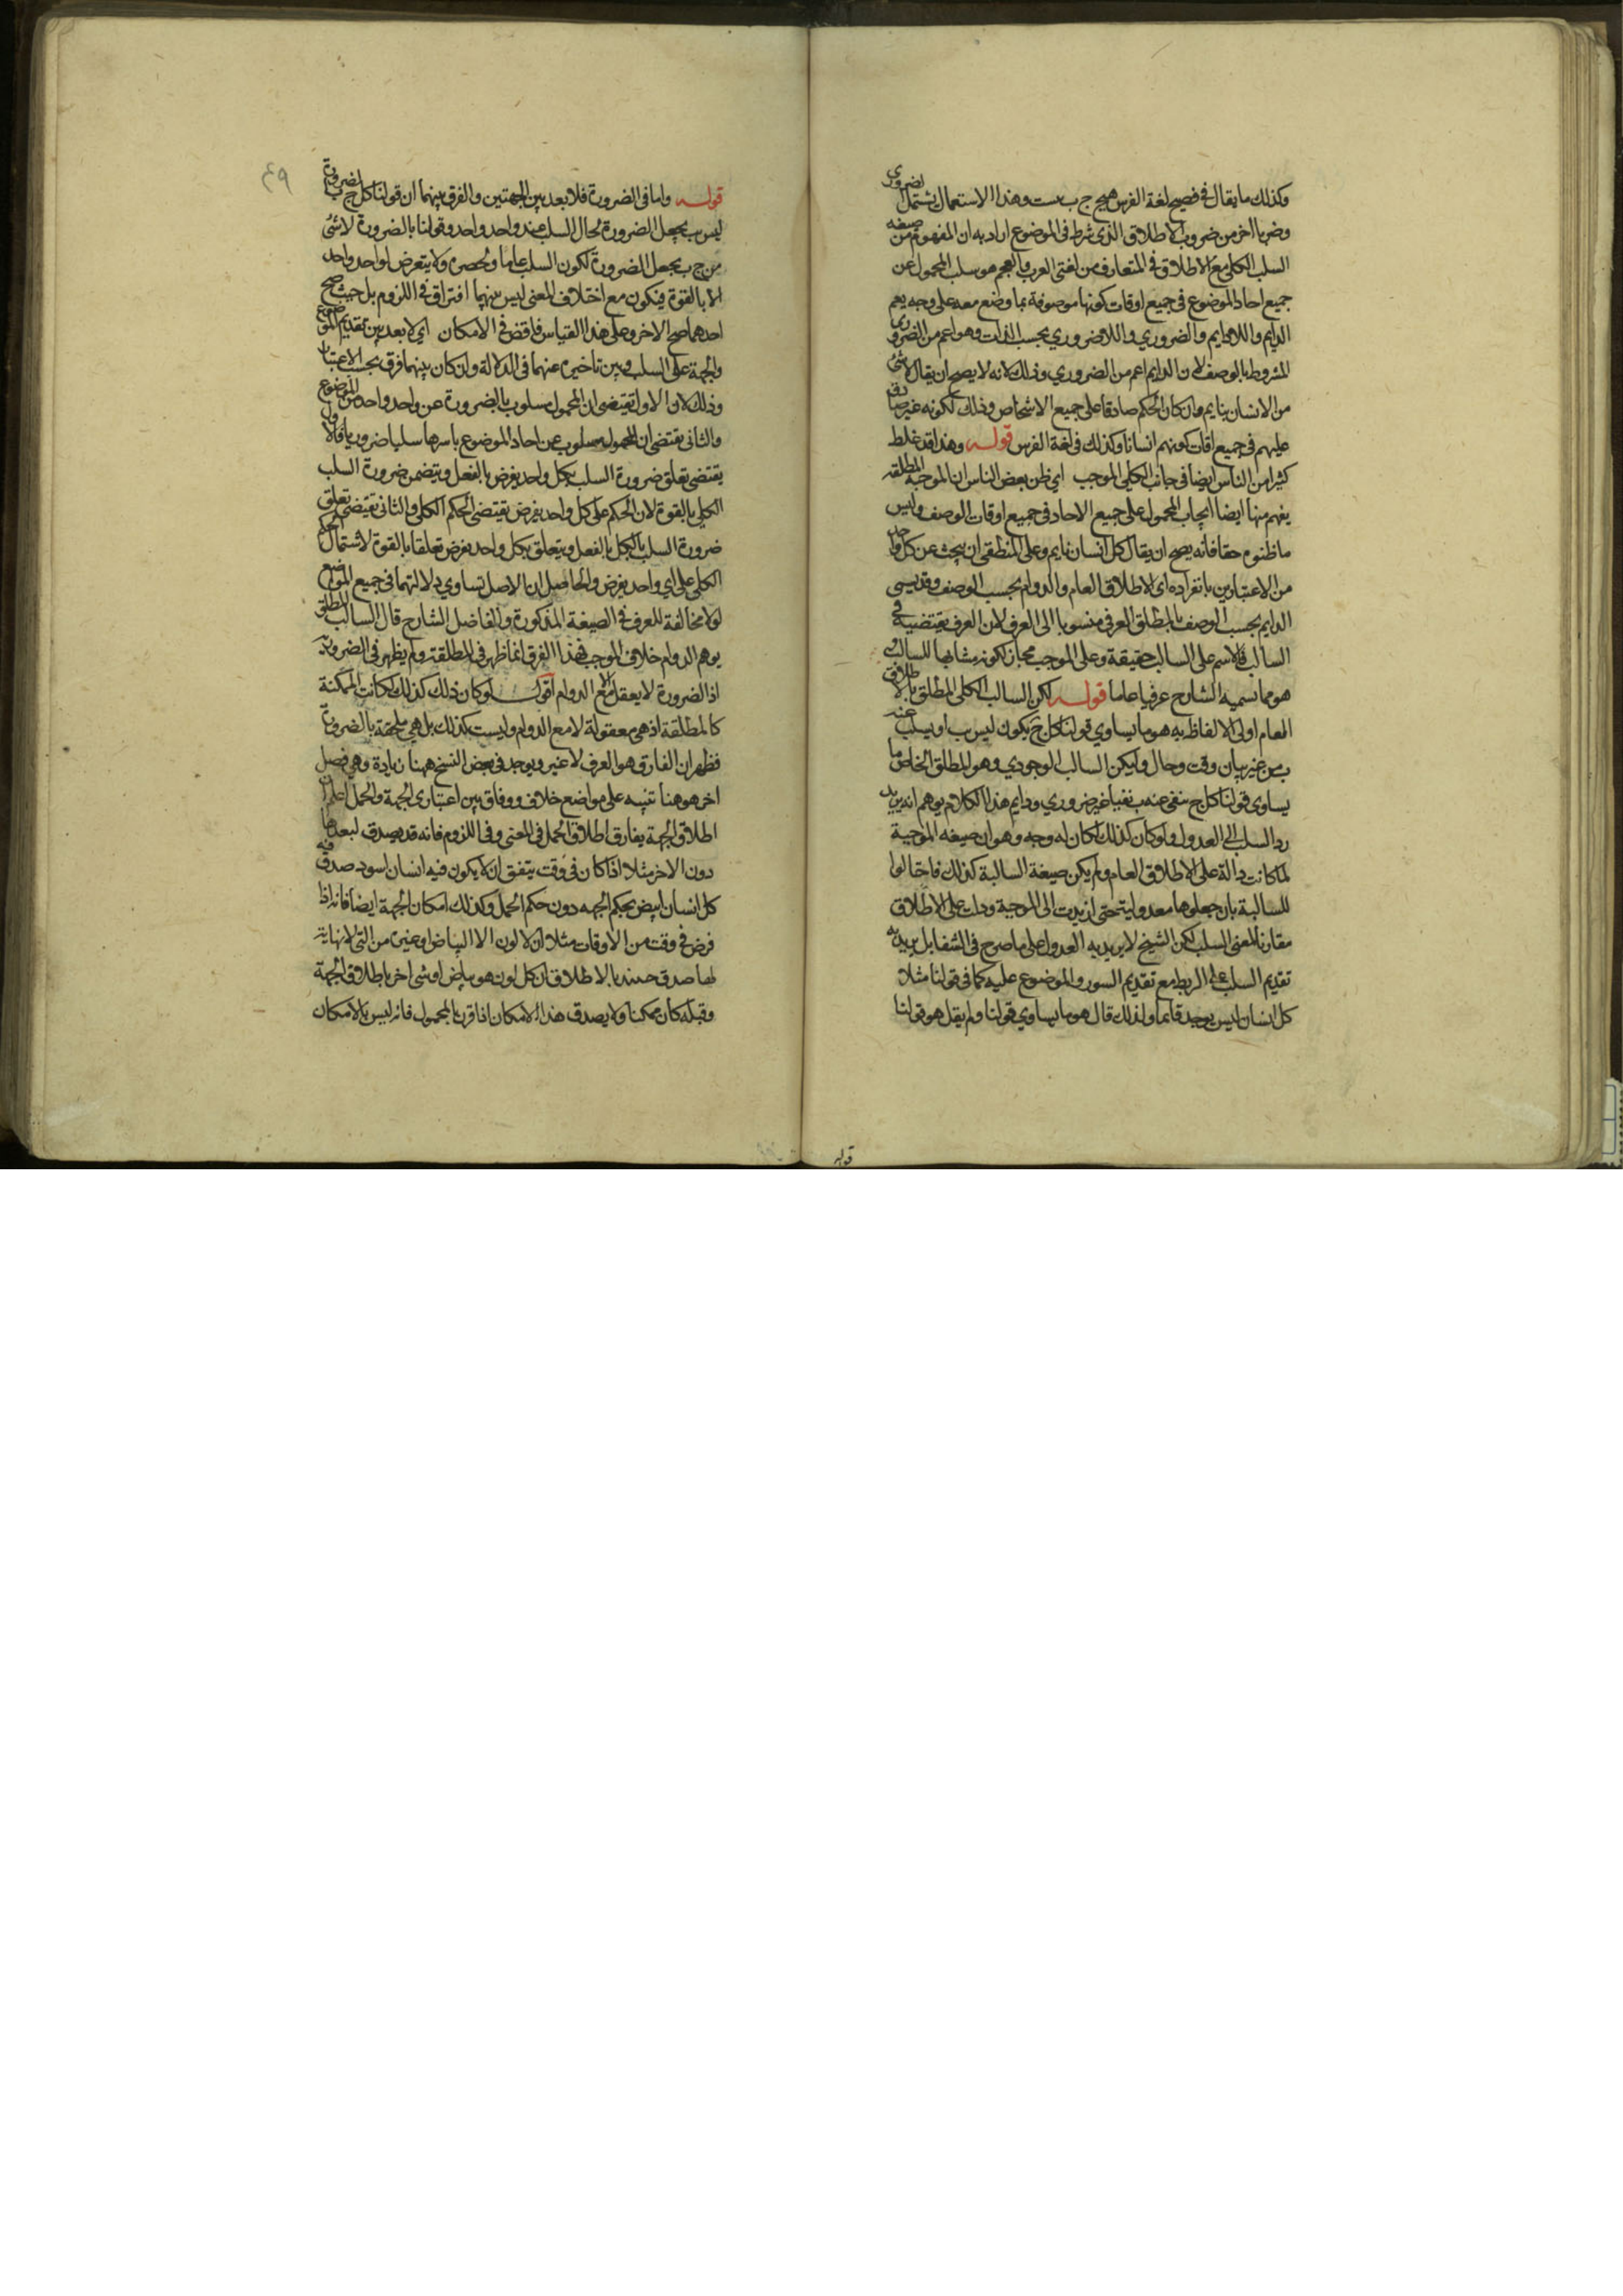 وكذلك ما يقال في فصيح لغة الفرس هيج ج ب نست وهذا الاستعمال يشتمل الضروري
وضربا اخر من ضروب الاطلاق الذي شرط في الموضوع اراد به ان المفهوم من صيغه
السلب الكلى مع الاطلاق في المتعارف من لغتى العرب والعجم هو سلب المحمول عن
جميع احاد الموضوع في جميع اوقات كونها موصوفة بما وضع معه على وجه يعم
الدايم واللادايم والضروري واللاضروري بحسب الذات وهو اعم من الضروري
المشروط بالوصف لان الدايم اعم من الضروري وذلك لانه لا يصح ان يقال لا شئ
من الانسان بنايم وان كان الحكم صادقا على جميع الاشخاص وذلك لكونه غير صادق
عليهم في جميع اوقات كونهم انسانا وكذلك في لغة الفرس قوله وهذا قد غلط
كثيرا من الناس ايضا في جانب الكلى الموجب اي ظن بعض الناس ان الموجبة المطلقه
يفهم منها ايضا ايجاب المحمول على جميع الاحاد في جميع اوقات الوصف وليس
ما ظنوه حقا فانه يصح ان يقال كل انسان نايم وعلى المنطقى ان يبحث عن كل واحد
من الاعتبارين بانفراده اى الاطلاق العام والدوام بحسب الوصف وقد يسمى
الدايم بحسب الوصف بالمطلق العرفى منسوبا الى العرف لان العرف يقتضيه في
السالب فالاسم على السالب حقيقة وعلى الموجب مجاز لكونه مشابها للسالب و
هو مما سميه الشارح عرفيا عاما قوله لكن السالب الكلى المطلق بالاطلاق
العام اولى الالفاظ به هو ما يساوي قولنا كل ج يكون ليس ب او يسلب عنه
ب من غير بيان وقت وحال وليكن السالب الوجودي وهو المطلق الخاص ما
يساوى قولنا كل ج ينفى عنه ب نفيا غير ضروري ودايم هذا الكلام يوهم انه يريد
رد السلب الى العدول ولو كان كذلك لكان له وجه وهو ان صيغه الموجبة
لما كانت دالة على الاطلاق العام ولم يكن صيغة السالبة كذلك فاحتالوا
للسالبة بان جعلوها معدوليه حتى ارتدت الى الموجبة ودلت على الاطلاق
مقارنا لمعنى السلب لكن الشيخ لا يريد به العدول على ما صرح في الشفا بل يريد به
تقديم السلب على الربط مع تقديم السور والموضوع عليه كما في قولنا مثلا
كل انسان ليس يوجد قائما ولذلك قال هو ما يساوي قولنا ولم يقل هو قولنا
قوله
٤٩
قوله واما في الضرورة فلا بعد بين الجهتين والفرق بينهما ان قولنا كل ج بالضرورة
ليس ب يجعل الضرورة لحال السلب عند واحد واحد وقولنا بالضرورة لا شئ
من ج ب يجعل الضرورة لكون السلب عاما ولحصره ولا يتعرض لواحد واحد
الا بالقوة فيكون مع اختلاف المعنى ليس بينهما افتراق في اللزوم بل حيث صح
احدهما صح الاخر وعلى هذا القياس فاقض في الامكان اي لا بعد بين تقديم الموضوع
والجهة على السلب وبين تاخيره عنهما في الدلالة وان كان بينهما فرق بحسب الاعتبار
وذلك لان الاول يقتضى ان المحمول مسلوب بالضرورة عن واحد واحد من الموضوع
والثانى يقتضى ان المحمول مسلوب عن احاد الموضوع باسرها سلبا ضروريا فالاول
يقتضى تعلق ضرورة السلب بكل واحد يفرض بالفعل ويتضمن ضرورة السلب
الكلي بالقوة لان الحكم على كل واحد يفرض يقتضى الحكم الكلى والثانى يقتضى تعلق
ضرورة السلب بالكل بالفعل ويتعلق بكل واحد يفرض تعلقا بالقوة لاشتمال الحكم
الكلى على اي واحد يفرض والحاصل ان الاصل تساوي دلالتهما في جميع المواضع
لولا مخالفة للعرف في الصيغة المذكورة والفاضل الشارح قال السالب المطلق
يوهم الدوام خلاف الموجب فهذا الفرق انما ظهر في المطلقة ولم يظهر في الضرورية
اذ الضرورة لا يعقل الا مع الدوام اقول لو كان ذلك كذلك لكانت الممكنة
كالمطلقة اذ هى معقولة لا مع الدوام وليست كذلك بل هي ملحقة بالضرورية
فظهر ان الفارق هو العرف لا غير ويوجد في بعض النسخ ههنا زيادة وهي فصل
اخر هو هنا تنبيه على مواضع خلاف ووفاق بين اعتبارى الجهة والحمل اعلم ان
اطلاق الجهة يفارق اطلاق الحمل في المعنى وفي اللزوم فانه قد يصدق احدهما
دون الاخر مثلا اذا كان في وقت يتفق ان لا يكون فيه انسان اسود صدق فيه
كل انسان ابيض بحكم الجهه دون حكم الحمل وكذلك امكان الجهة ايضا فانه اذا
فرض في وقت من الاوقات مثلا ان لا لون الا البياض او غيره من التى لا نهاية
لها صدق حينئذ بالاطلاق ان كل لون هو بياض او شئ اخر باطلاق الجهة
وقبله كان ممكنا ولا يصدق هذا الامكان اذا قرن بالمحمول فانه ليس بالامكان